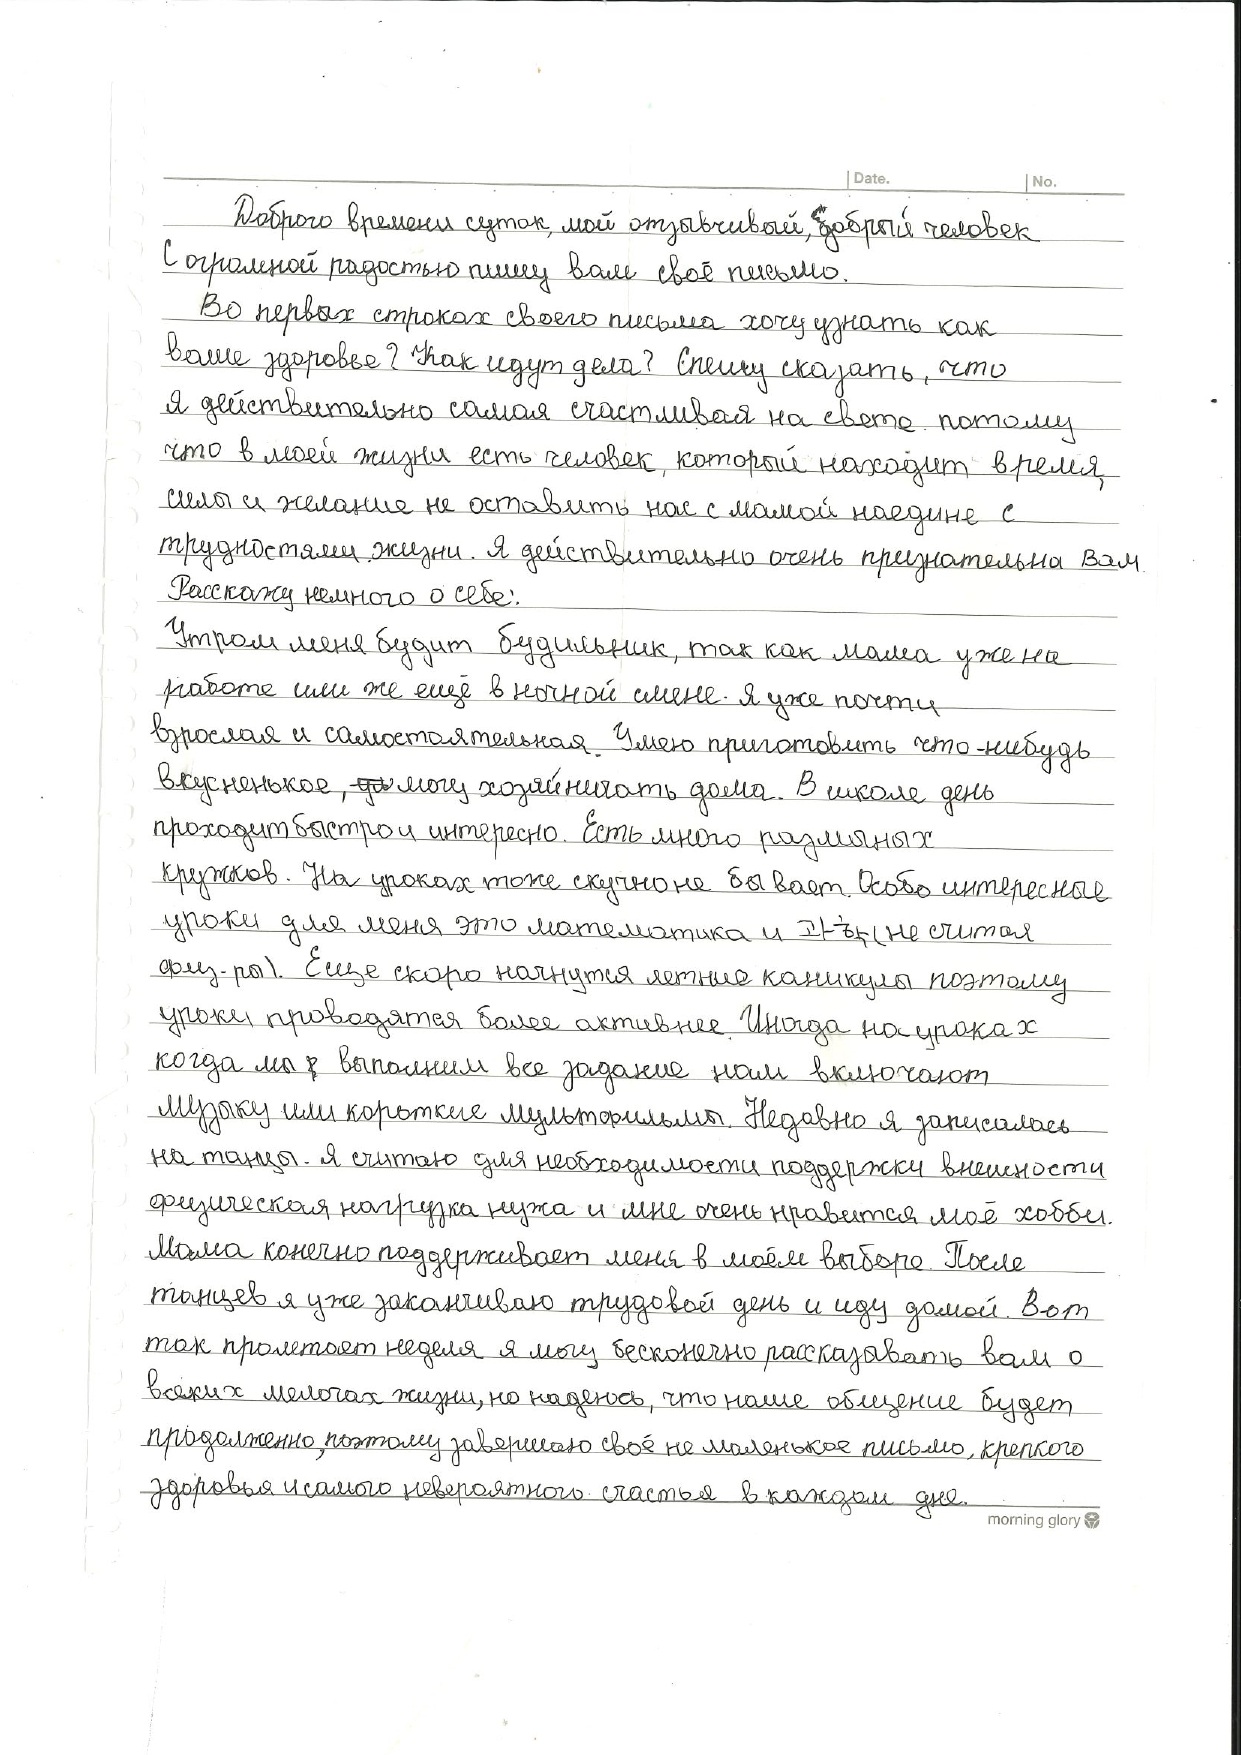 Date. No.
Доброго времени суток, мой отзывчивый, добрый человек
С огромной радостью пишу вам своё письмо.
Во первых строках своего письма хочу узнать как
ваше здоровье? Как идут дела? Спешу сказать, что
я действительно самая счастливая на свете потому
что в моей жизни есть человек, который находит время,
силы и желание не оставить нас с мамой наедине с
трудностями жизни. Я действительно очень признательна Вам
Расскажу немного о себе:
Утром меня будит будильник, так как мама уже на
работе или же ещё в ночной смене. Я уже почти
взрослая и самостоятельная. Умею приготовить что-нибудь
вкусненькое, могу хозяйничать дома. В школе день
проходит быстро и интересно. Есть много размыных
кружков. На уроках тоже скучно не бывает. Особо интересные
уроки для меня это математика и 과학 (не считая
физ-ры). Еще скоро начнутся летние каникулы поэтому
уроки проводятся более активнее. Иногда на уроках
когда мы выполним все задание нам включают
музыку или короткие мультфильмы. Недавно я записалась
на танцы. Я считаю для необходимости поддержки внешности
физическая нагрузка нужа и мне очень нравится моё хобби.
Мама конечно поддерживает меня в моём выборе. После
танцев я уже заканчиваю трудовой день и иду домой. Вот
так пролетает неделя я могу бесконечно рассказывать вам о
всяких мелочах жизни, но надеюсь, что наше общение будет
продолженно, поэтому завершаю своё не маленькое письмо, крепкого
здоровья и самого невероятного счастья в каждом дне.
morning glory